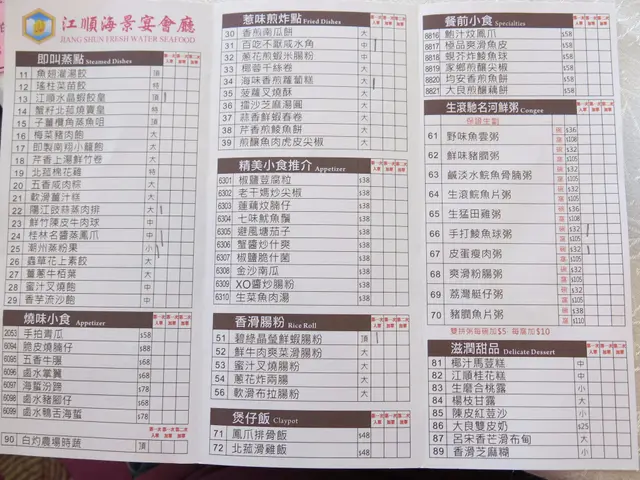 江順海景宴會廳
JIANG SHUN FRESH WATER SEAFOOD
即叫蒸點 Steamed Dishes
11 魚翅灌湯餃 頂
12 瑤柱菜苗餃 特
13 江順水晶蝦餃皇 頂
14 蟹籽北菰燒賣皇 特
15 子薑欖角蒸魚咀 頂
16 梅菜豬肉飽 大
17 即製南翔小籠飽 大
18 芹香上湯鮮竹卷 大
19 北菰棉花雞 特
20 五香咸肉粽 大
21 軟滑薑汁糕 大
22 陽江豉蒜蒸肉排 大
23 鮮竹陳皮牛肉球 中
24 桂林名醬蒸鳳爪 中
25 潮州蒸粉果 小
26 蟲草花上素餃 大
27 薑蔥牛栢葉 大
28 蜜汁叉燒飽 中
29 香芋流沙飽 中
燒味小食 Appetizer
2053 手拍青瓜 $58
6094 脆皮燒腩仔 $88
6095 五香牛𦟌 $68
6096 鹵水掌翼 $68
6097 海蜇汾蹄 $78
6098 鹵水豬腳仔 $68
6099 鹵水鴨舌海蜇 $78
90 白灼農場時蔬 頂
惹味煎炸點 Fried Dishes
30 香煎南瓜餅 大
31 百吃不厭咸水角 中
32 蔥花煎蝦米腸粉 中
33 椰蓉千絲卷 大
34 海味香煎蘿蔔糕 中
35 菠蘿叉燒酥 大
36 擂沙芝麻湯圓 大
37 蒜香鮮蝦春卷 大
38 芹香煎鯪魚餅 大
39 煎釀魚肉虎皮尖椒 大
精美小食推介 Appetizer
6301 椒鹽荳腐粒 $38
6302 老干媽炒尖椒 $38
6303 蓮藕炆腩仔 $38
6304 七味魷魚鬚 $38
6305 避風塘茄子 $38
6306 蟹醬炒什爽 $38
6307 椒鹽脆什菌 $38
6308 金沙南瓜 $38
6309 XO醬炒腸粉 $38
6310 生菜魚肉湯 $38
香滑腸粉 Rice Roll
51 碧綠晶瑩鮮蝦腸粉 頂
52 鮮牛肉爽菜滑腸粉 大
53 蜜汁叉燒腸粉 大
54 蔥花炸兩腸 大
56 軟滑布拉腸粉 大
煲仔飯 Claypot
71 鳳爪排骨飯 $48
72 北菰滑雞飯 $48
餐前小食 Specialties
8816 鮑汁炆鳳爪 $38
8817 極品爽滑魚皮 $38
8818 銀芥炸鯪魚球 $38
8819 家鄉煎釀尖椒 $38
8820 均安香煎魚餅 $38
8821 大良煎釀藕餅 $38
生滾馳名河鮮粥 Congee
保證生劏
61 野味魚雲粥 碗 $36 窩 $108
62 鮮味豬膶粥 碗 $32 窩 $105
63 鹹淡水鯇魚骨腩粥 碗 $32 窩 $105
64 生滾鯇魚片粥 碗 $32 窩 $105
65 生猛田雞粥 碗 $36 窩 $108
66 手打鯪魚球粥 碗 $32 窩 $105
67 皮蛋瘦肉粥 碗 $32 窩 $105
68 爽滑粉腸粥 碗 $32 窩 $105
69 荔灣艇仔粥 碗 $32 窩 $105
70 豬膶魚片粥 碗 $32 窩 $105
雙拼粥每碗加$5 每窩加$10
滋潤甜品 Delicate Dessert
81 椰汁馬荳糕 中
82 江順桂花糕 中
83 生磨合桃露 小
84 楊枝甘露 大
85 陳皮紅荳沙 小
86 大良雙皮奶 $25
87 呂宋香芒滑布甸 大
89 香滑芝麻糊 小